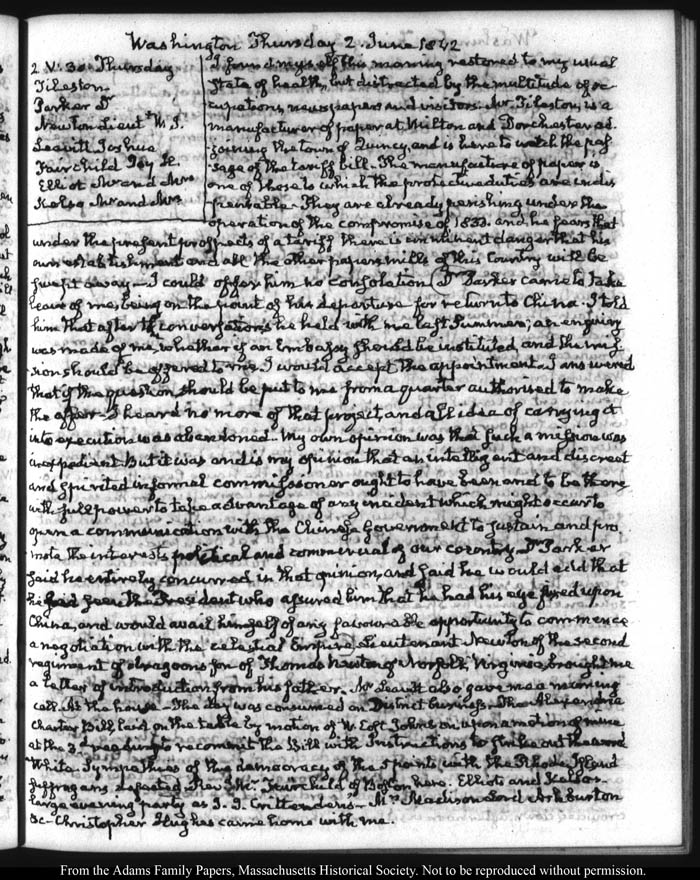 Washington Thursday 2. June 1842
2. V:30. Thursday
Tileston
Parker Dr
Newton Lieut W. I.
Leavitt Joshua
Fairchild Joy H.
Elliot Mr and Mrs
Kelso Mr and Mrs
I found myself this morning restored to my usual
state of health, but distracted by the multitude of oc-
cupations, newspapers and visitors. Mr. Tileston, is a
manufacturer of paper at Milton and Dorchester ad-
joining the town of Quincy, and is here to watch the pas-
sage of the tariff bill. The manufacture of paper is
one of those to which the protective duties are indis-
pensable. They are already perishing under the
operation of the compromise of 1833. and he fears that
under the present prospects of a tariff there is imminent danger that his
own establishment and all the other paper mills of this Country will be
swept away. I could offer him no consolation. Dr Parker came to take
leave of me, being on the point of his departure for return to China. I told
him that after the conversations he held with me last Summer; an enquiry
was made of me, whether if an Embassy should be instituted and the mis-
sion should be offered to me I would accept the appointment. I answered
that if the question should be put to me from a quarter authorised to make
the offer. I heard no more of that project and all idea of carrying it
into execution was abandoned. My own opinion was that such a mission was
inexpedient. But it was and is my opinion that an intelligent and discreet
and spirited informal commissioner ought to have been and to be there
with full power to take advantage of any incident which might occur to
open a communication with the Chinese Government to sustain and pro-
mote the interests political and commercial of our country. Dr Parker
said he entirely concurred in that opinion, and said he would add that
he had seen the President who assured him that he had his eye fixed upon
China, and would avail himself of any favourable opportunity to commence
a negotiation with the celestial Empire. Lieutenant Newton of the second
regiment of dragoons son of Thomas Newton of Norfolk, Virginia brought me
a letter of introduction from his father. Mr Leavitt also gave me a morning
call. At the house. The day was consumed on District business. The Alexandria
Charter Bill laid on the table by motion of W. Cost Johnson upon a motion of mine
at the 3d reading to recommit the Bill with Instructions to strike out the word
White. Sympathies of the democracy of the 5 points with the Rhode Island
Suffragans defeated. Rev. Mr. Fairchild of Boston here. Elliots and Kelsos.
large evening party at J. J. Crittenden's. Mrs Madison Lord Ashburton
&c. Christopher Hughes came home with me.
From the Adams Family Papers, Massachusetts Historical Society. Not to be reproduced without permission.